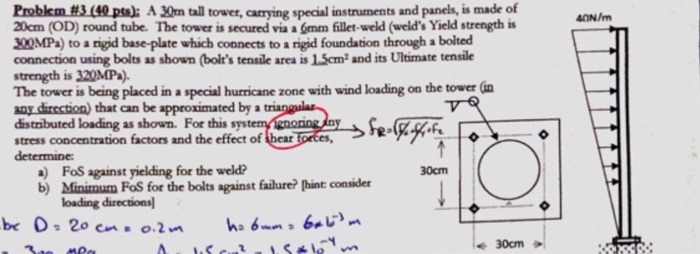 Problem #3 (40 pts): A 30m tall tower, carrying special instruments and panels, is made of
20cm (OD) round tube. The tower is secured via a 6mm fillet-weld (weld's Yield strength is
300MPa) to a rigid base-plate which connects to a rigid foundation through a bolted
connection using bolts as shown (bolt's tensile area is 1.5cm² and its Ultimate tensile
strength is 320MPa).
The tower is being placed in a special hurricane zone with wind loading on the tower (in
any direction) that can be approximated by a triangular
distributed loading as shown. For this system, ignoring any
stress concentration factors and the effect of shear forces,
determine:
a) FoS against yielding for the weld?
b) Minimum FoS for the bolts against failure? [hint: consider
loading directions]
40N/m
30cm
30cm
D = 20 cm = 0.2m h = 6mm = 6x10⁻³ m
1.5 cm² 1.5x10⁻⁴ m